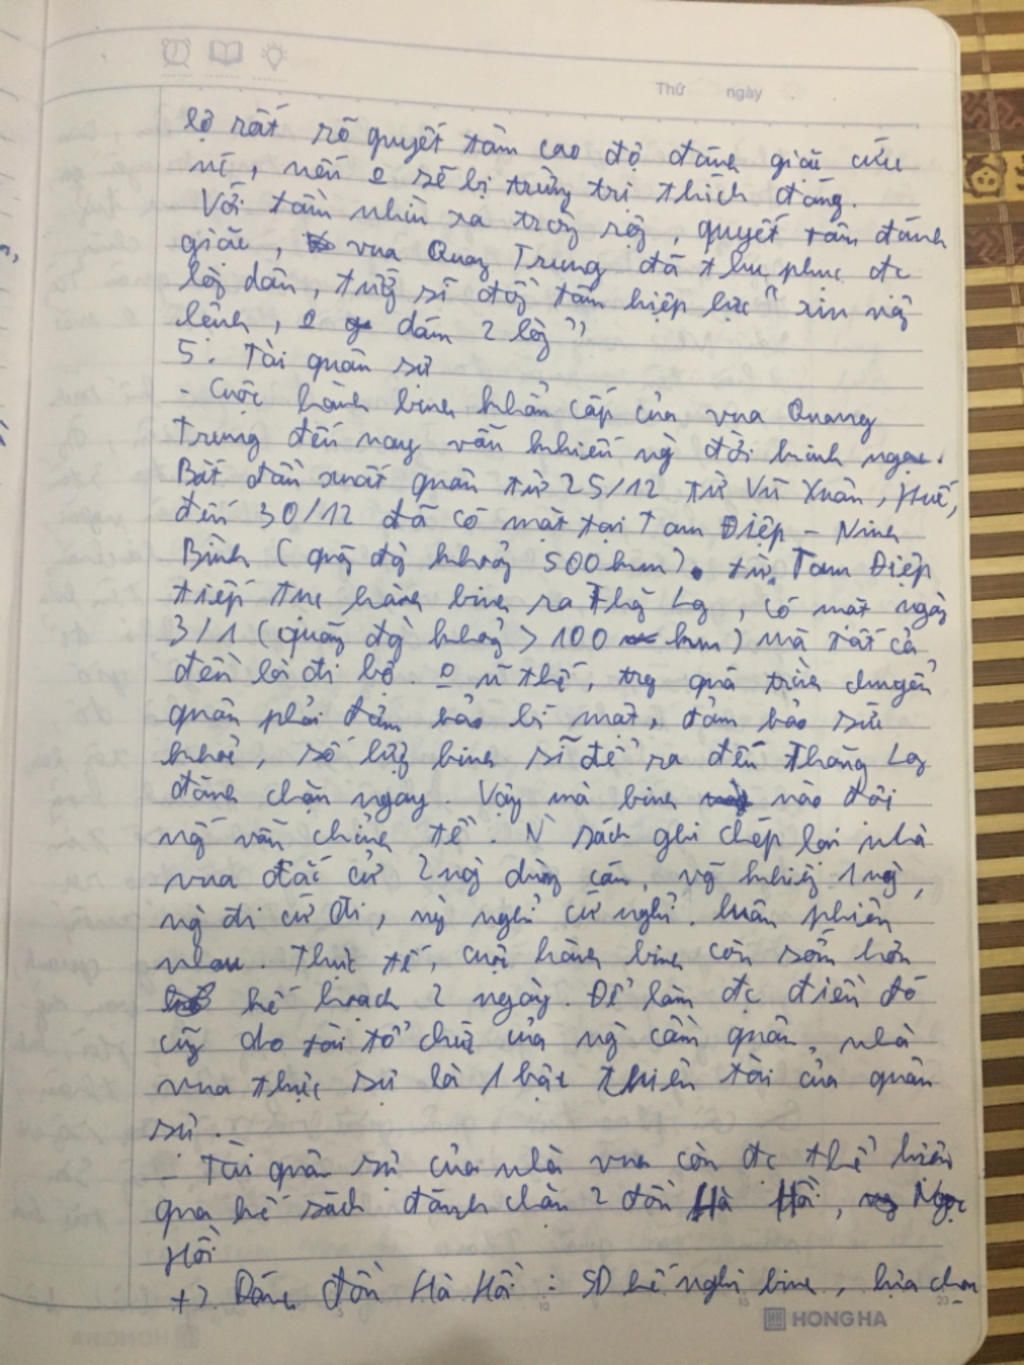 Thứ ngày
lộ rất rõ quyết tâm cao độ đánh giặc cứu
nc, nếu o sẽ bị trừng trị thích đáng.
Với tầm nhìn xa trôg rộg, quyết tâm đánh
giặc, vua Quag Trung đã thu phục đc
lòg dân, tướg sĩ đồg tâm hiệp lực "xin vâg
lệnh, o dám 2 lòg"
5. Tài quân sự
- Cuộc hành binh khẩn cấp của vua Quang
Trung đến nay vẫn khiến ng đời kinh ngạc.
Bắt đầu xuất quân từ 25/12 từ Vú Xuân, Huế,
đến 30/12 đã có mặt tại Tam Điệp - Ninh
Bình (quãg đg khoảg 500km). từ Tam Điệp
tiếp tục hành binh ra Thăg Lg, có mặt ngày
3/1 (quãg đg khoảg > 100 km) mà tất cả
đều là đi bộ. o n thế, trg quá trình chuyển
quân phải đảm bảo bí mật, đảm bảo sức
khoẻ, số lượg binh sĩ để ra đến Thăng Lg
đánh chặn ngay. Vậy mà binh nào đội
ngũ vẫn chỉnh tề. N sách ghi chép lại nhà
vua đắc cử 2 ng dùg cán, võg khiêg 1 ng,
ng đi cứ đi, ng nghỉ cứ nghỉ, luân phiên
nhau. Thực tế, cuộc hành binh còn sớm hơn
kế hoạch 2 ngày. Để làm đc điều đó
cũg do tài tổ chức của ng cầm quân, nhà
vua thực sự là 1 bậc thiên tài của quân
sự.
- Tài quân sự của nhà vua còn đc thể hiện
qua kế sách đánh chặn 2 đồn Hà Hồi, Ngọc
Hồi
+) Đánh đồn Hà Hồi: SD kế nghi binh, lựa chọn
HONG HA